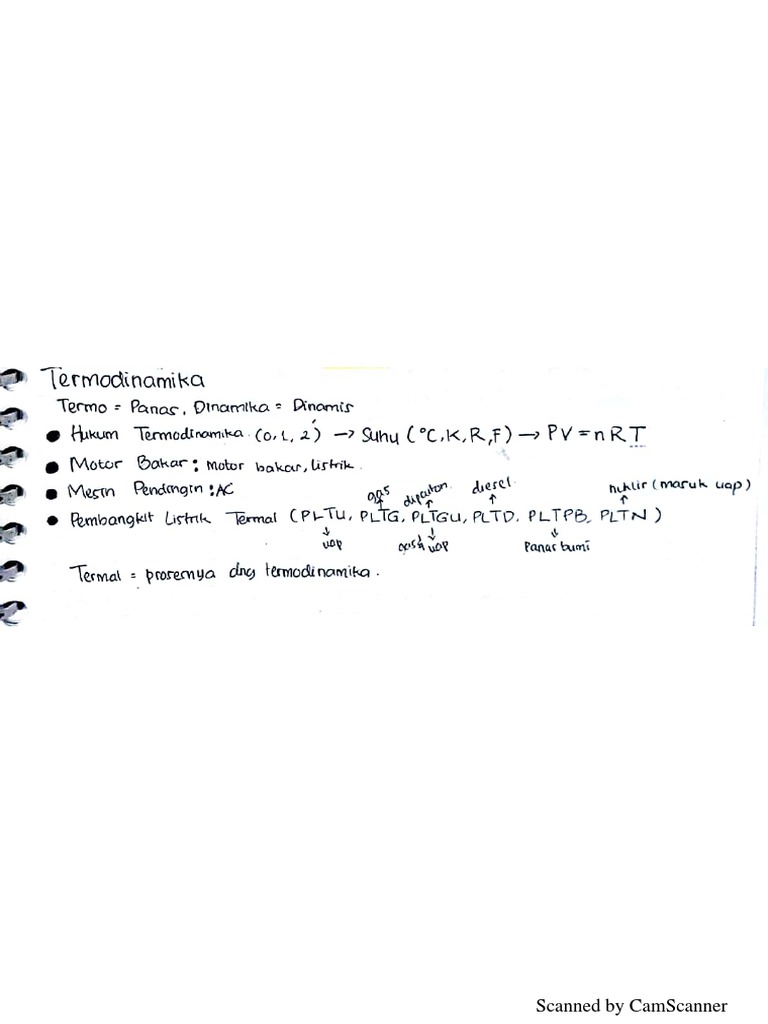 Termodinamika
Termo = Panas, Dinamika = Dinamis
• Hukum Termodinamika (0, 1, 2) → Suhu (°C, K, R, F) → PV = nRT
• Motor Bakar : motor bakar, listrik.
• Mesin Pendingin : AC
gas dipaiton diesel nuklir (masuk uap)
• Pembangkit Listrik Termal (PLTU, PLTG, PLTGU, PLTD, PLTPB, PLTN)
uap gas & uap Panas bumi
Termal = prosesnya dng termodinamika.
Scanned by CamScanner